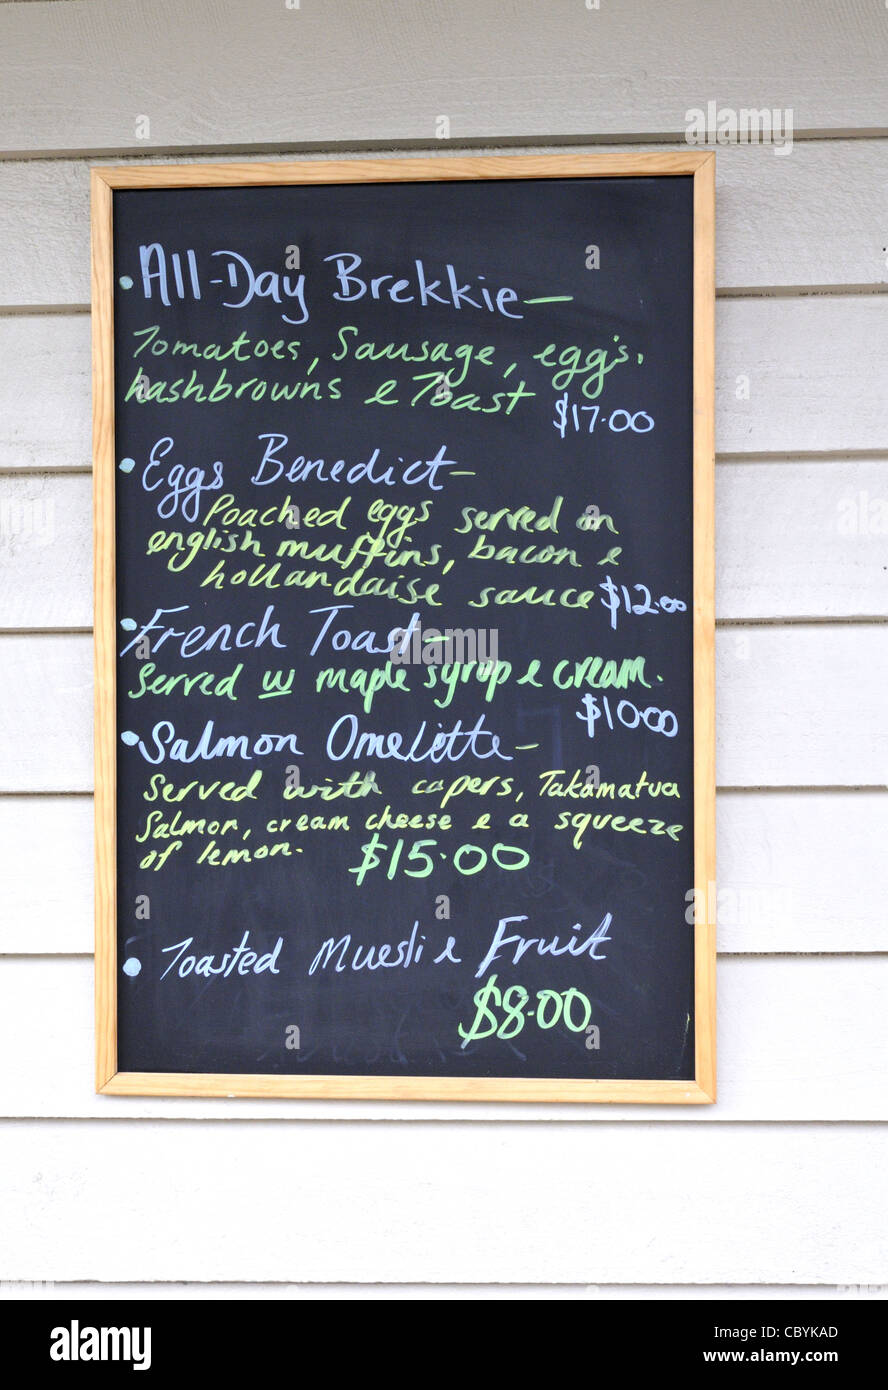 • All-Day Brekkie –
Tomatoes, Sausage, egg's,
hashbrowns & Toast
$17.00
• Eggs Benedict –
Poached eggs served on
english muffins, bacon &
hollandaise sauce $12.00
• French Toast –
Served w maple syrup & cream.
$10.00
• Salmon Omelette –
Served with capers, Takamatua
Salmon, cream cheese & a squeeze
of lemon. $15.00
• Toasted Muesli & Fruit
$8.00
alamy
Image ID: CBYKAD
www.alamy.com